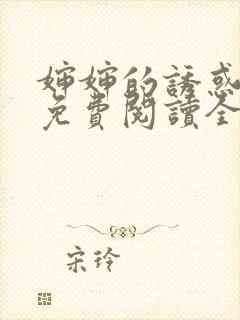 嬸嬸的誘惑
免費閱讀全
宋玲